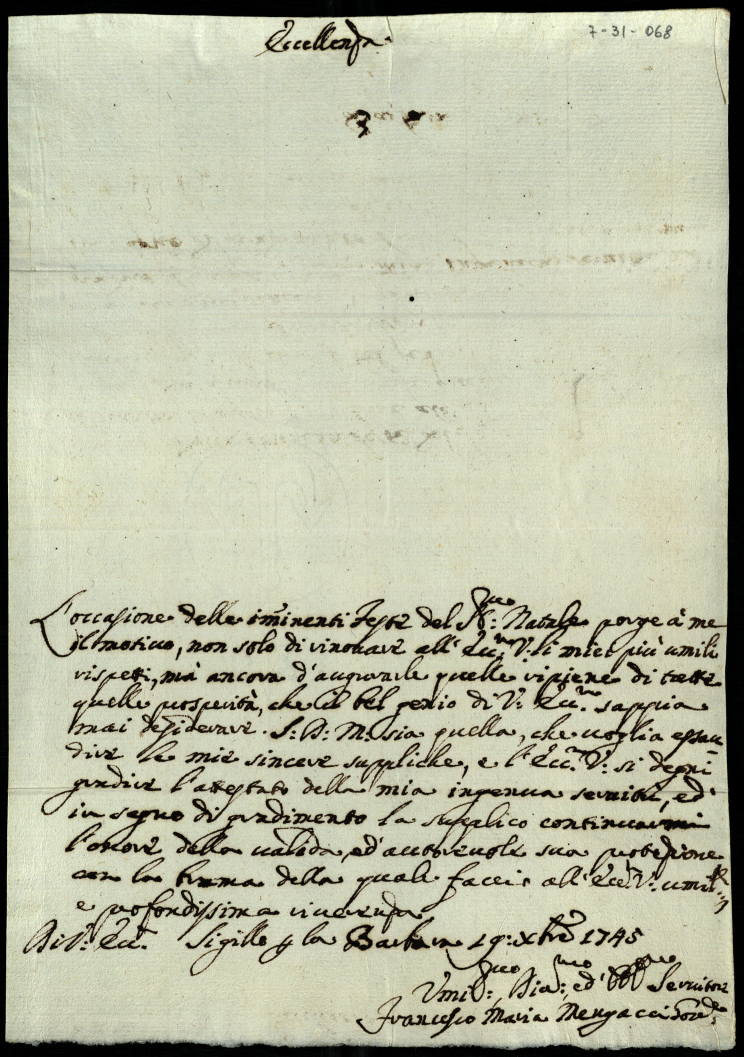 7-31-068
Eccellenza
L'occasione delle imminenti Feste del SS:mo Natale porge à me
il motivo, non solo di rinovare all'Ecc:za V: li miei più umili
rispetti, mà ancora d'augurarle quelle ripiene di tutte
quelle prosperità, che il bel genio di V: Ecc:za sappia
mai desiderare. S: D: M: sia quella, che voglia essau
dire le mie sincere suppliche, e l'Ecc:za V: si degni
gradire l'attestato della mia ingenua servitù, ed'
in segno di gradimento la supplico continuarmi
l'onore della valida, ed'autorevole sua protezione
con la brama della quale faccio all'Ecc:za V: umil:
e profondissima riverenza
Di V: Ecc:za Sigillo p la 19: Xbre 1745
Umil:mo, Div:mo, ed' Obb:mo Servitore
Francesco Maria Mengacci